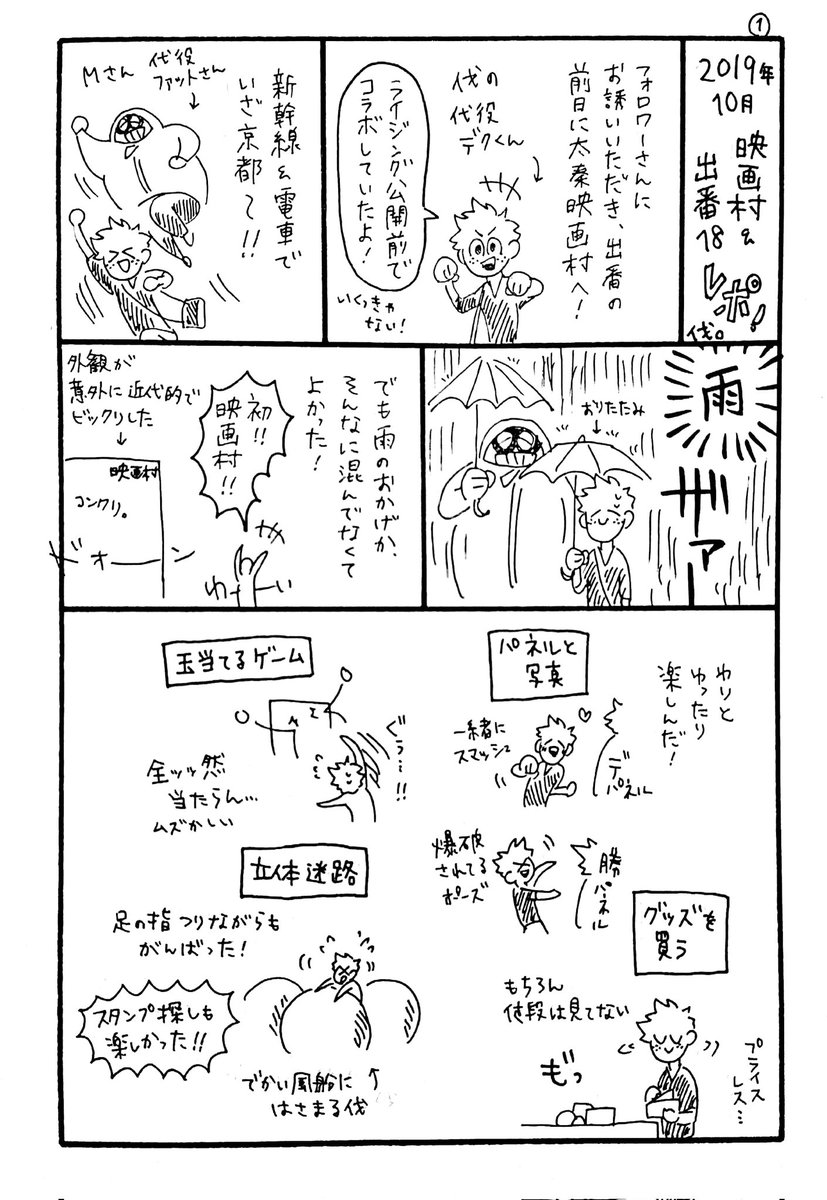 ①
2019年
10月
映画村&
出番18
レポ!
伐。
フォロワーさんに
お誘いいただき、出番の
前日に太秦映画村へ!
伐の
代役
デクくん
ライジング公開前で
コラボしていたよ!
いくっきゃ
ない!
新幹線&電車で
いざ京都〜!!
代役
ファットさん
Mさん
雨
ザァー
おりたたみ
でも雨のおかげか、
そんなに混んでなくて
よかった!
初!!
映画村!!
わーい
外観が
意外に近代的で
ビックリした
映画村
コンクリ。
ドォーン
わりと
ゆったり
楽しんだ!
パネルと
写真
一緒に
スマッシュ
デ
パネル
爆破
されてる
ポーズ
勝
パネル
グッズを
買う
もちろん
値段は見てない
もっ
プライス
レス…
玉当てるゲーム
ぐぅ…!!
全ッッ然
当たらん…
ムズかしい
立体迷路
足の指つりながらも
がんばった!
スタンプ探しも
楽しかった!!
でかい風船に
はさまる伐